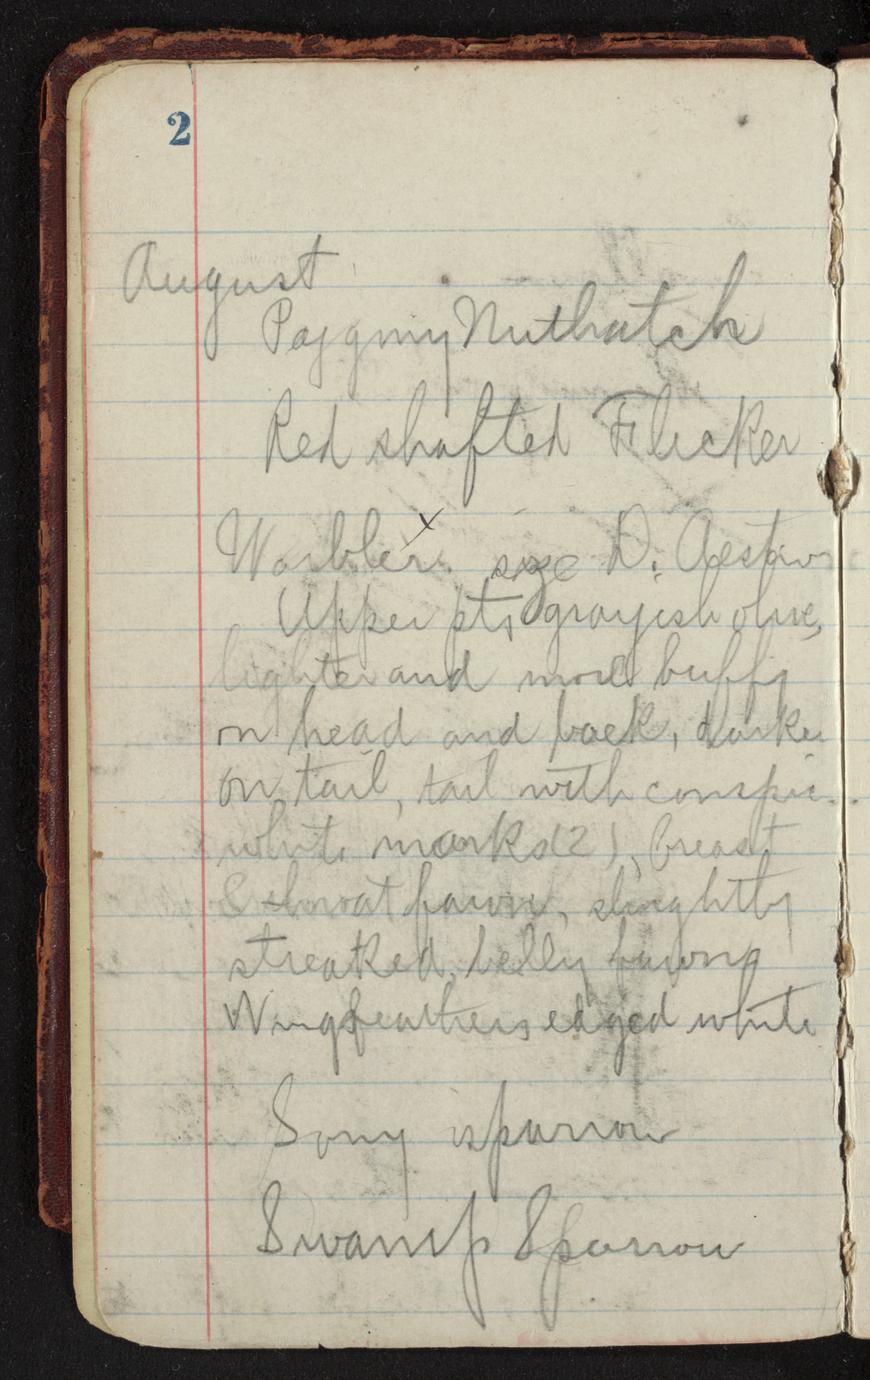 2
August
Paygmy Nuthatch
Red shafted Flicker
Warbler x size D. Aestiv
Upper pts grayish olive,
lighter and more buffy
on head and back, darker
on tail, tail with conspic.
white marks (2), breast
& throat fawn, slightly
streaked, belly fawn
Wing feathers edged white
Song sparrow
Swamp Sparrow